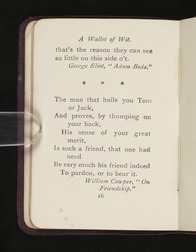 A Wallet of Wit.
that's the reason they can see
so little on this side o't.
George Eliot, "Adam Bede."
* * *
The man that hails you Tom
or Jack,
And proves, by thumping on
your back,
His sense of your great
merit,
Is such a friend, that one had
need
Be very much his friend indeed
To pardon, or to bear it.
William Cowper, "On
Friendship."
16